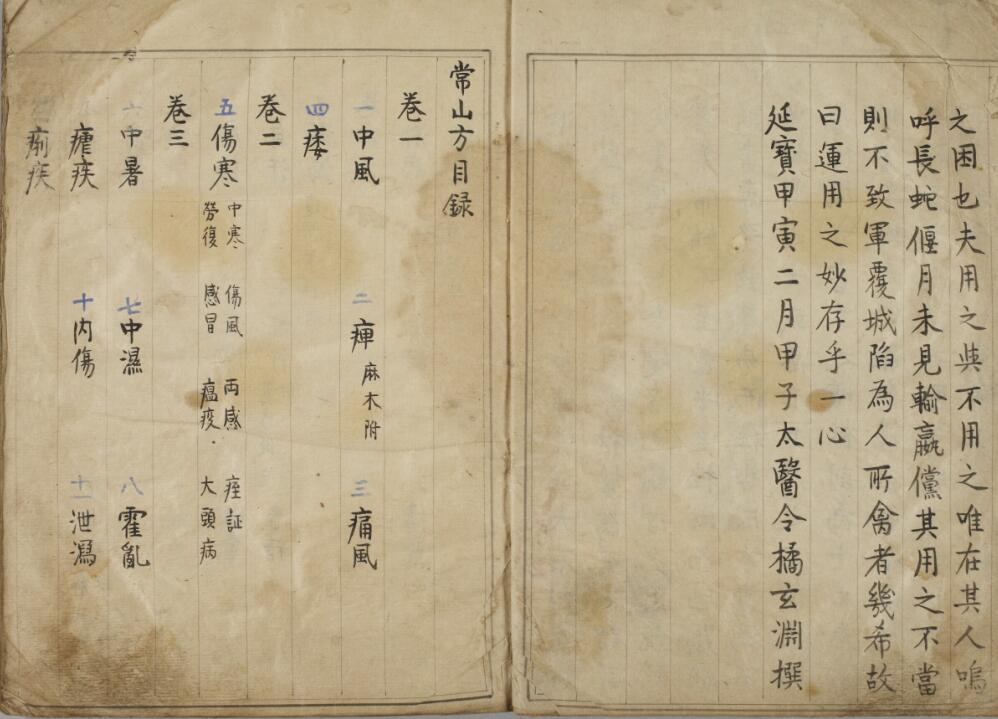 之困也夫用之與不用之唯在其人嗚
呼長蛇偃月未見輸嬴儻其用之不當
則不致軍覆城陷為人所禽者幾希故
曰運用之妙存乎一心
延寶甲寅二月甲子太醫令橘玄淵撰
常山方目録
巻一
一中風 二痺 麻木附 三痛風
四痿
巻二
五傷寒 中寒 傷風 両感 痓証
勞復 感冒 瘟疫 大頭病
巻三
六中暑 七中濕 八霍亂
瘧疾 十内傷 十一泄瀉
痢疾